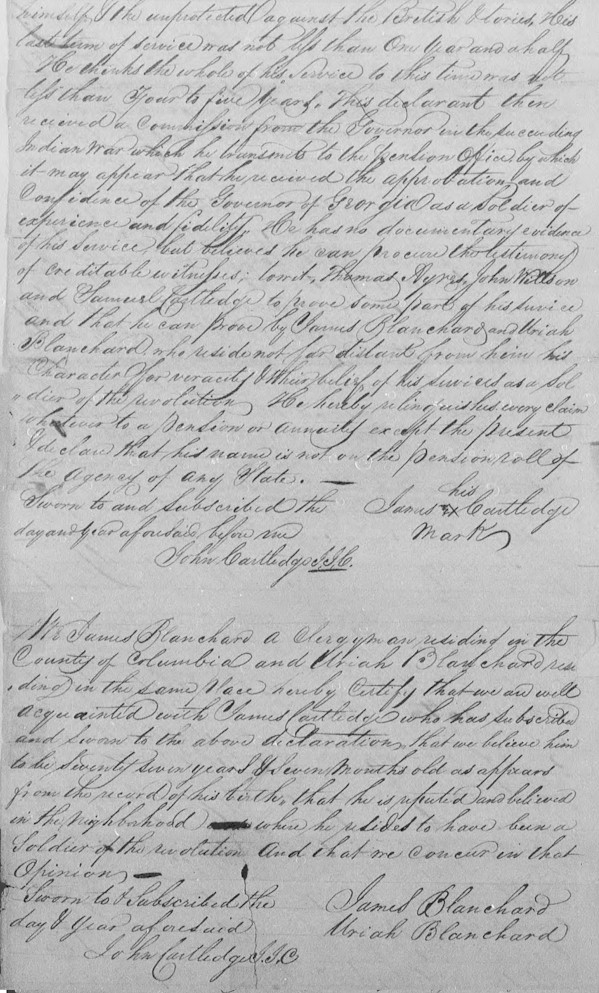 himself & the unprotected against the British & tories, His
last turn of service was not less than One Year and a half
He thinks the whole of his service to this time was not
less than Four to five Years. This declarant then
received a Commission from the Governor in the succeeding
Indian War which he transmits to the pension Office by which
it may appear that he received the approbation and
Confidence of the Governor of Georgia as a Soldier of
experience and fidelity. He has no documentary evidence
of his service but believes he can procure the testimony
of creditable witnesses; towit, Thomas Ayres, John Willson
and Samuel Cartledge to prove some part of his service
and that he can prove by James Blanchard and Uriah
Blanchard who reside not far distant from him his
Character for veracity & their belief of his services as a Sol
dier of the revolution He hereby relinquishes every claim
whatever to a pension or annuity except the present
& declare that his name is not on the pension roll of
the Agency of any State. —
his
Sworn to and subscribed the James X Cartledge
day and Year aforesaid before me Mark
John Cartledge J.I.C.
We James Blanchard a Clergyman residing in the
County of Columbia and Uriah Blanchard resi
ding in the same place hereby Certify that we are well
acquainted with James Cartledge who has subscribed
and sworn to the above declaration, that we believe him
to be Seventy seven years & Seven Months old as appears
from the record of his birth, that he is reputed and believed
in the Neighborhood where he resides to have been a
Soldier of the revolution and that we concur in that
Opinion —
Sworn to & Subscribed the James Blanchard
day & Year aforesaid Uriah Blanchard
John Cartledge J.I.C